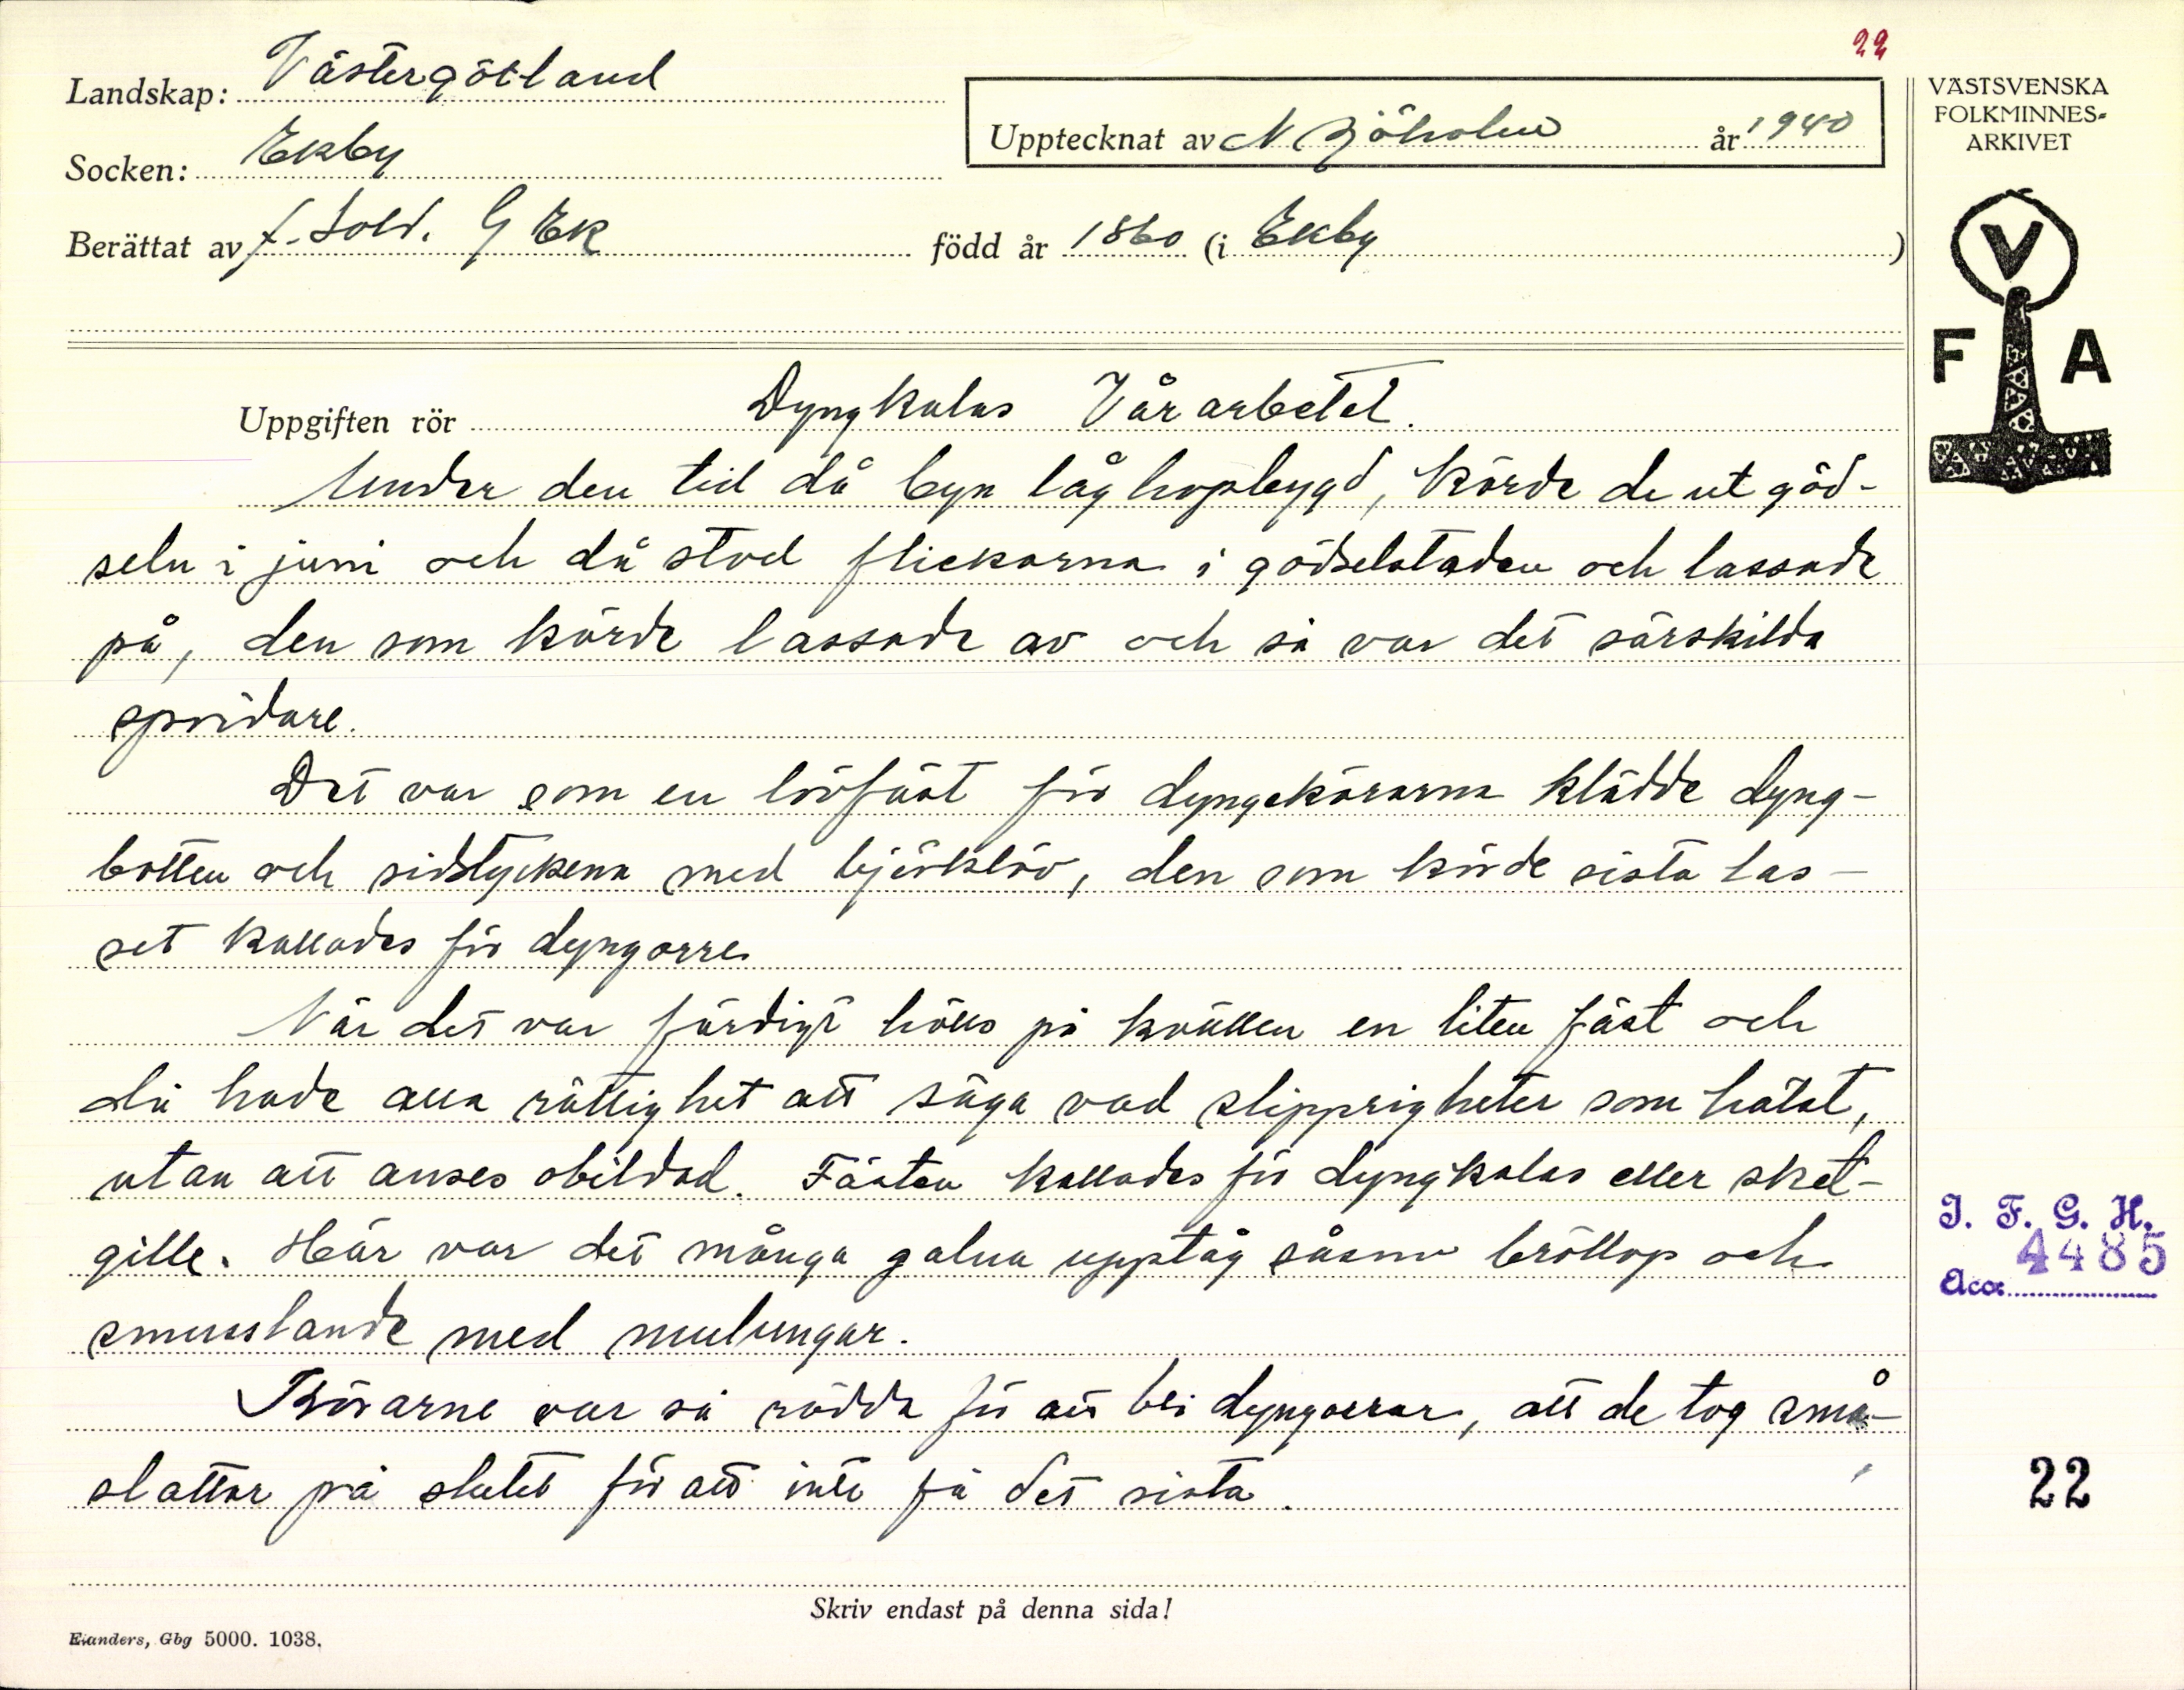 22
Landskap: Västergötland
Upptecknat av N Sjöholm år 1940
Socken: Ekby
Berättat av f. Sold. G Ek född år 1860 (i Ekby)
VÄSTSVENSKA
FOLKMINNES-
ARKIVET
V
F A
Uppgiften rör Dyngkalas Vårarbetet.
Under den tid då byn låg hopbygd, körde de ut göd-
seln i juni och då stod flickorna i gödselstaden och lassade
på, den som körde lassade av och så var det särskilda
spridare.
Det var som en lövfäst för dyngekörarna klädde dyng-
botten och sidstyckena med björklöv, den som körde sista las-
set kallades för dyngorre
När det var färdigt hölls på kvällen en liten fäst och
då hade alla rättighet att säga vad slipprigheter som hälst,
utan att anses obildad. Fästen kallades för dyngkalas eller sket-
gille. Här var det många galna upptåg såsom bröllop och
smusslande med mulungar.
Körarne var så rädda för att bli dyngorrar, att de tog små-
slattar på slutet för att inte få det sista.
I. F. G. H.
Acc. 4485
22
Skriv endast på denna sida!
Elanders, Gbg 5000. 1038.